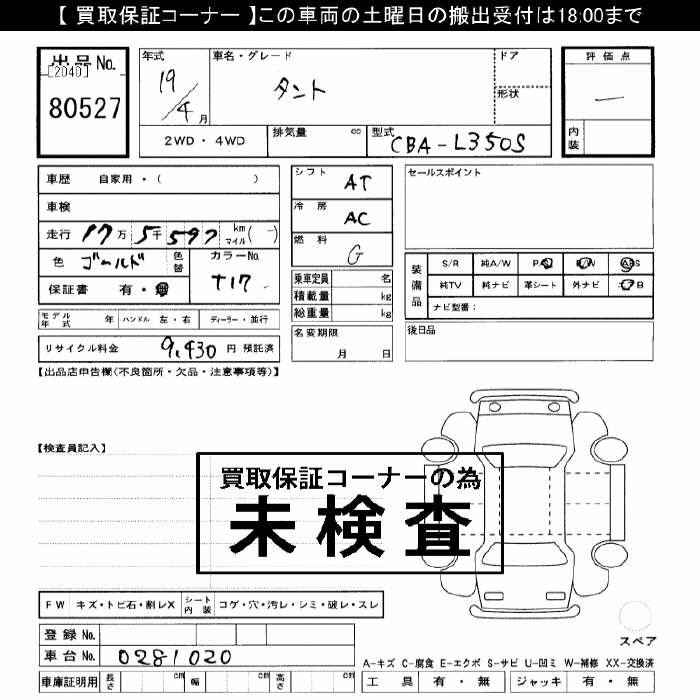 【 買取保証コーナー 】この車両の土曜日の搬出受付は18:00まで
出品No.
[2040]
80527
年式
19/4月
車名・グレード
タント
ドア
形状
評価点
―
内装
2WD・4WD
排気量 cc
型式 CBA-L350S
車歴 自家用・( )
車検
走行 17万5千597 km マイル(-)
色 ゴールド 色替
カラーNo. T17
保証書 有・無
モデル年式 年 ハンドル 左・右 ディーラー・並行
リサイクル料金 9,430円 預託済
シフト AT
冷房 AC
燃料 G
乗車定員 名
積載量 kg
総重量 kg
名変期限 月 日
セールスポイント
装備品
S/R 純A/W P/S P/W ABS
純TV 純ナビ 革シート 外ナビ エアB
ナビ型番:
後日品
【出品店申告欄(不良箇所・欠品・注意事項等)】
【検査員記入】
買取保証コーナーの為
未検査
FW キズ・トビ石・割レX シート内装 コゲ・穴・汚レ・シミ・破レ・スレ
登録No.
車台No. 0281020
車庫証明用 長さ cm 幅 cm 高さ cm
スペア
A-キズ C-腐食 E-エクボ S-サビ U-凹ミ W-補修 XX-交換済
工具 有・無 ジャッキ 有・無